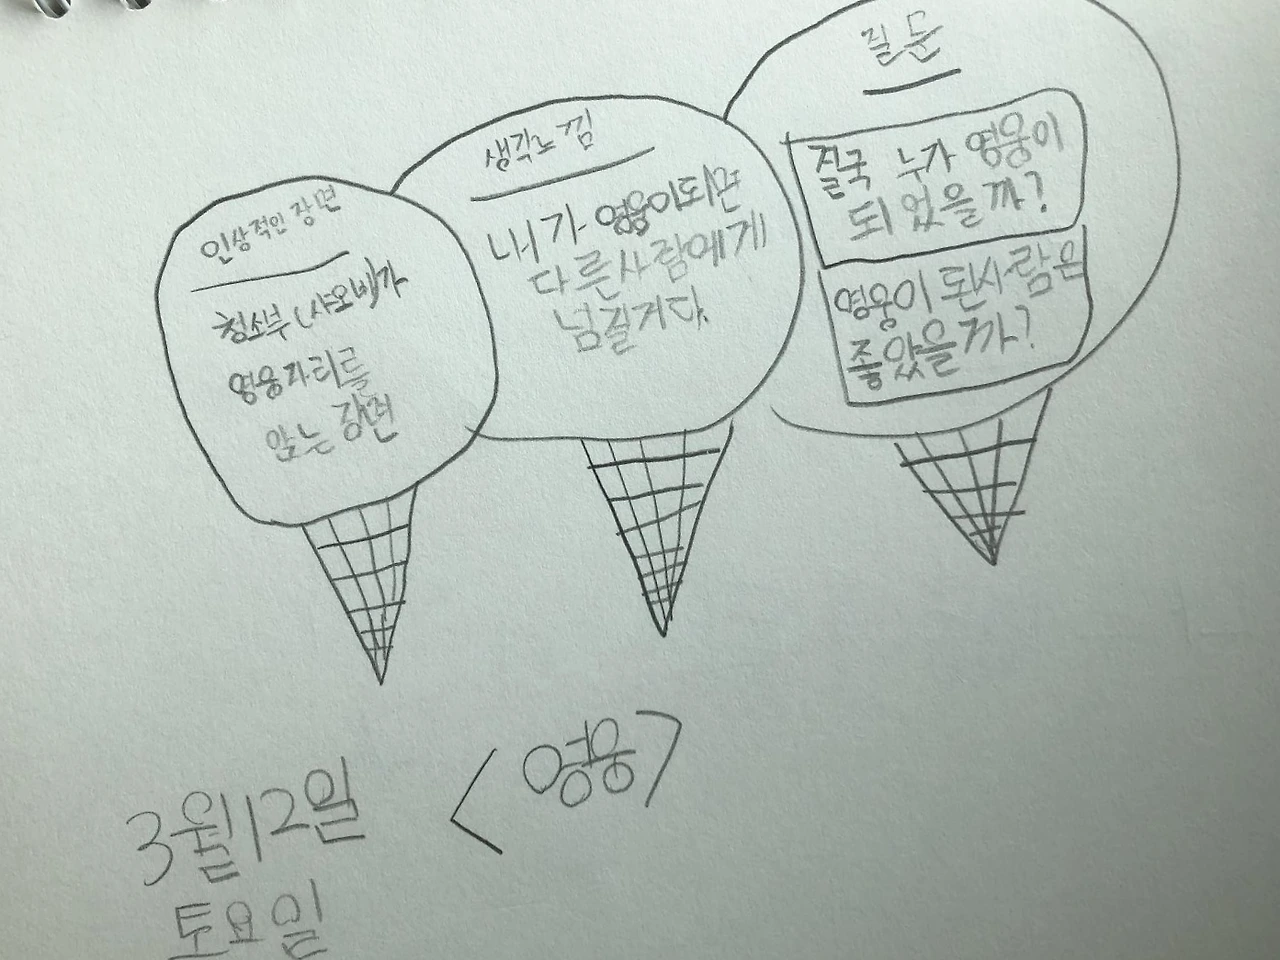 인상적인 장면
청소부(샤오비)가
영웅자리를
앉는 장면
생각느낌
내가 영웅이되면
다른사람에게
넘길거다.
질문
결국 누가 영웅이
되었을까?
영웅이 된사람은
좋았을까?
<영웅>
3월12일
토요일